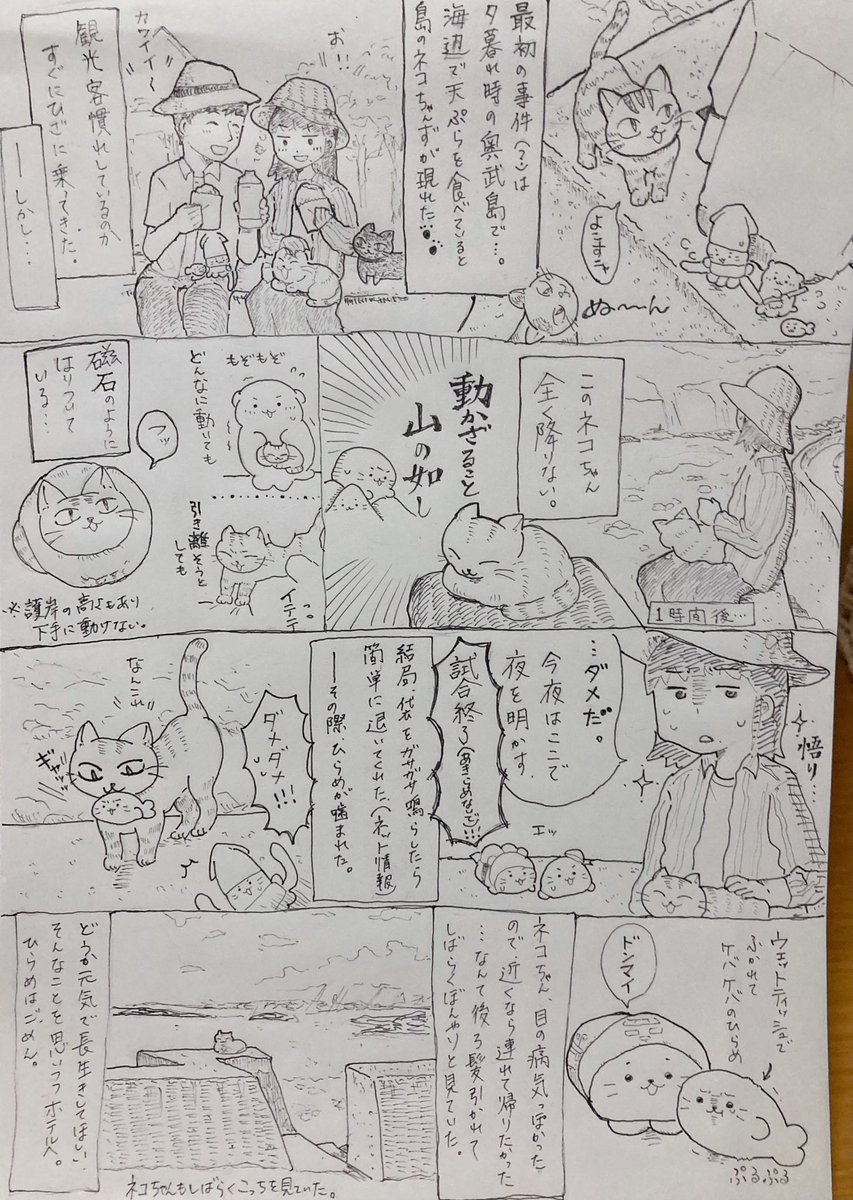 最初の事件(?)は
夕暮れ時の奥武島で…。
海辺で天ぷらを食べていると
島のネコちゃんずが現れた
よこすニャ
ぬ〜〜ん
お!!
カワイイ〜
観光客慣れしているのか
すぐにひざに乗ってきた。
―しかし…
1時間後…
このネコちゃん
全く降りない。
動かざること
山の如し
もぞもぞ
どんなに動いても
引き離そうと
しても
イテテ
フッ
磁石のように
はりついて
いる…
※護岸の高さもあり
下手に動けない。
悟り…
…ダメだ。
今夜はここで
夜を明かす。
試合終了(あきらめないで)!!!
エッ
結局、袋をガサガサ鳴らしたら
簡単に退いてくれた(ネット情報)
―その際ひらめが噛まれた。
ダメダメ!!!
なんこれ
ギャッ
ウェットティッシュで
ふかれて
ケバケバのひらめ
ドンマイ
ぷるぷる
ネコちゃん、目の病気っぽかった
ので近くなら連れて帰りたかった
…なんて後ろ髪引かれて
しばらくぼんやりと見ていた。
ネコちゃんもしばらくこっちを見ていた。
どうか元気で長生きしてほしい
そんなことを思いつつホテルへ。
ひらめはごめん。